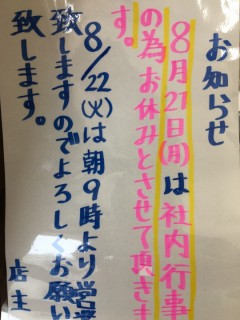 お知らせ
8月21日(月)は社内行事
の為お休みとさせて頂きま
す。
8/22(火)は朝9時より営業
致しますのでよろしくお願い
致します。
店主